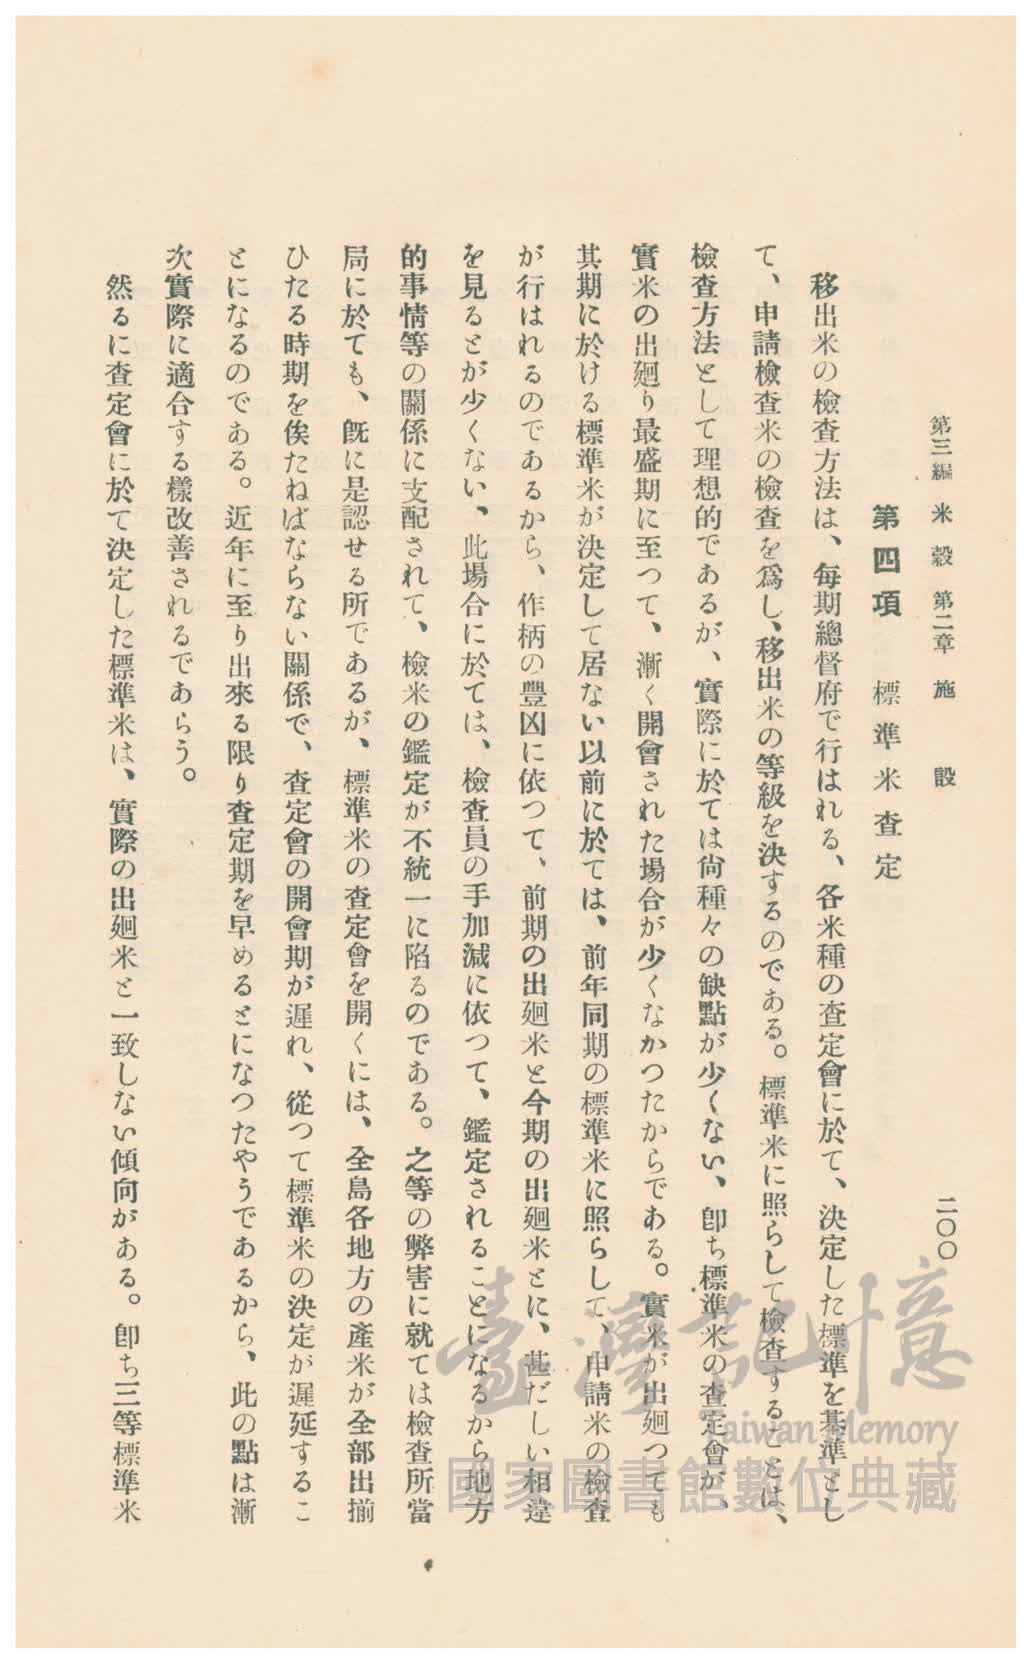 第三編 米穀 第二章 施設
二〇〇
第四項 標準米査定
移出米の檢査方法は、每期總督府で行はれる、各米種の査定會に於て、決定した標準を基準とし
て、申請檢査米の檢査を爲し、移出米の等級を決するのである。標準米に照らして檢査することは、
檢査方法として理想的であるが、實際に於ては尙種々の缺點が少くない、卽ち標準米の査定會が、
實米の出廻り最盛期に至つて、漸く開會された場合が少くなかつたからである。實米が出廻つても
其期に於ける標準米が決定して居ない以前に於ては、前年同期の標準米に照らして、申請米の檢査
が行はれるのであるから、作柄の豐凶に依つて、前期の出廻米と今期の出廻米とに、甚だしい相違
を見るとが少くない、此場合に於ては、檢査員の手加減に依つて、鑑定されることになるから地方
的事情等の關係に支配されて、檢米の鑑定が不統一に陷るのである。之等の弊害に就ては檢査所當
局に於ても、旣に是認せる所であるが、標準米の査定會を開くには、全島各地方の產米が全部出揃
ひたる時期を俟たねばならない關係で、査定會の開會期が遲れ、從つて標準米の決定が遲延するこ
とになるのである。近年に至り出來る限り査定期を早めるとになつたやうであるから、此の點は漸
次實際に適合する樣改善されるであらう。
然るに査定會に於て決定した標準米は、實際の出廻米と一致しない傾向がある。卽ち三等標準米
臺灣記憶
Taiwan Memory
國家圖書館數位典藏